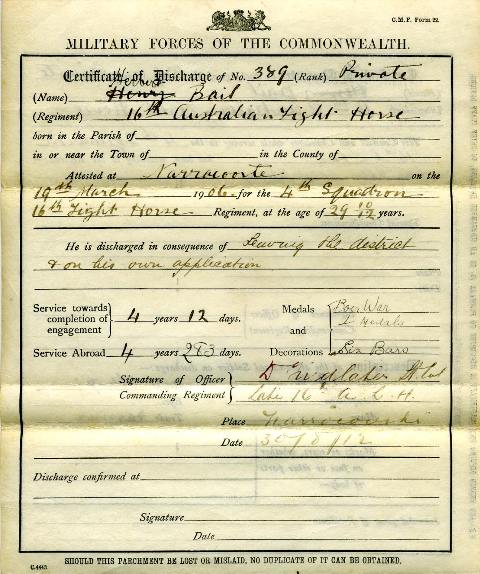 C.M.F. Form 22.
MILITARY FORCES OF THE COMMONWEALTH.
Certificate of Discharge of No. 389 (Rank) Private
Herbert
(Name) Henry Bail
(Regiment) 16th Australian Light Horse
born in the Parish of
in or near the Town of in the County of
Attested at Narracoorte on the
19th March 1906 for the 4th Squadron
16th Light Horse Regiment, at the age of 29 10/12 years.
He is discharged in consequence of Leaving the district
& on his own application
Service towards completion of engagement } 4 years 12 days.
Medals and Decorations { Boer War
2 Medals
Six Bars
Service Abroad 4 years 283 days.
Signature of Officer Commanding Regiment } Lt Col
Late 16th A. L. H.
Place
Date 30/8/12
Discharge confirmed at
Signature
Date
SHOULD THIS PARCHMENT BE LOST OR MISLAID, NO DUPLICATE OF IT CAN BE OBTAINED.